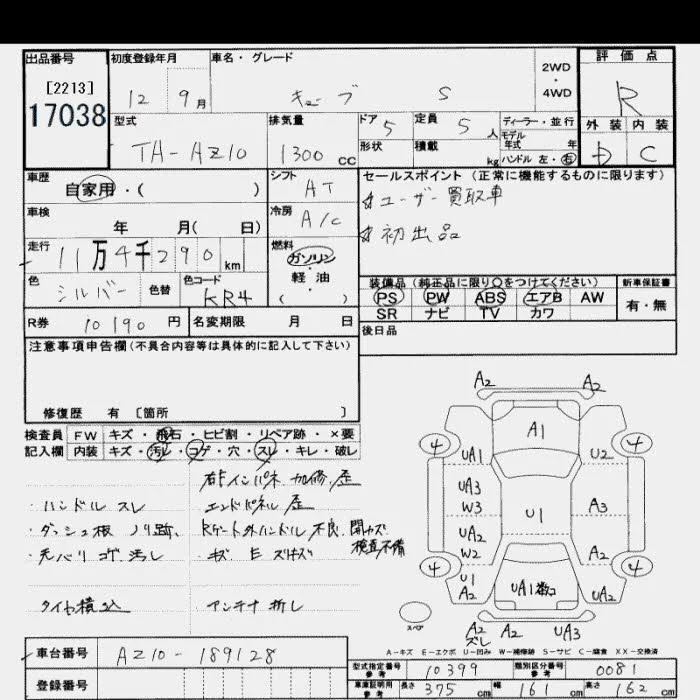 出品番号
[2213]
17038
初度登録年月
12 9月
車名・グレード
キューブ S
2WD
・
4WD
評価点
R
外装 内装
D C
型式
TA-AZ10
排気量
1300 CC
ドア 5
定員 5 人
形状
積載 kg
ディーラー・並行
モデル
年式 年
ハンドル 左・右
車歴
自家用・( )
シフト
AT
セールスポイント(正常に機能するものに限ります)
☆ユーザー買取車
☆初出品
車検
年 月( 日)
冷房
A/C
走行
11万4千290km
燃料
ガソリン
・
軽油
( )
色
シルバー
色替
色コード
KR4
装備品(純正品に限り○をつけてください)
PS PW ABS エアB AW
SR ナビ TV カワ
新車保証書
有・無
R券 10190円
名変期限 月 日
後日品
注意事項申告欄(不具合内容等は具体的に記入して下さい)
修復歴 有 [箇所 ]
検査員 FW キズ・飛石・ヒビ割・リペア跡・×要
記入欄 内装 キズ・汚レ・コゲ・穴・スレ・キレ・破レ
右Fインパネ 加修.歪
・ハンドル スレ
エンドパネル 歪
・ダッシュ板 ノリ跡、
Rゲート外ハンドル 不良.
・天バリ コゲ.汚レ
検査不備
タイヤ積込
アンテナ折レ
A2 A2
A1
4 4
UA1 U2
UA3
W3 A3
U1
UA2
W2 A2
4 4
U1
A2 UA2
UA1数コ
スペア
A2 A2 UA3
ズレ
A-キズ E-エクボ U-凹み W-補修跡 S-サビ C-腐食 XX-交換済
車台番号 AZ10-189128
登録番号
型式指定番号
参考
10399
類別区分番号
参考
0081
車庫証明用
参考
長さ 375cm 幅 161cm 高さ 162cm